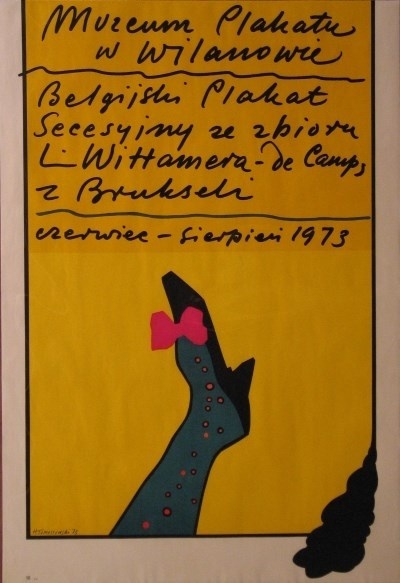 Muzeum Plakatu
w Wilanowie
Belgijski Plakat
Secesyjny ze zbioru
L. Wittamera-de Camps
z Brukseli
czerwiec - sierpień 1973